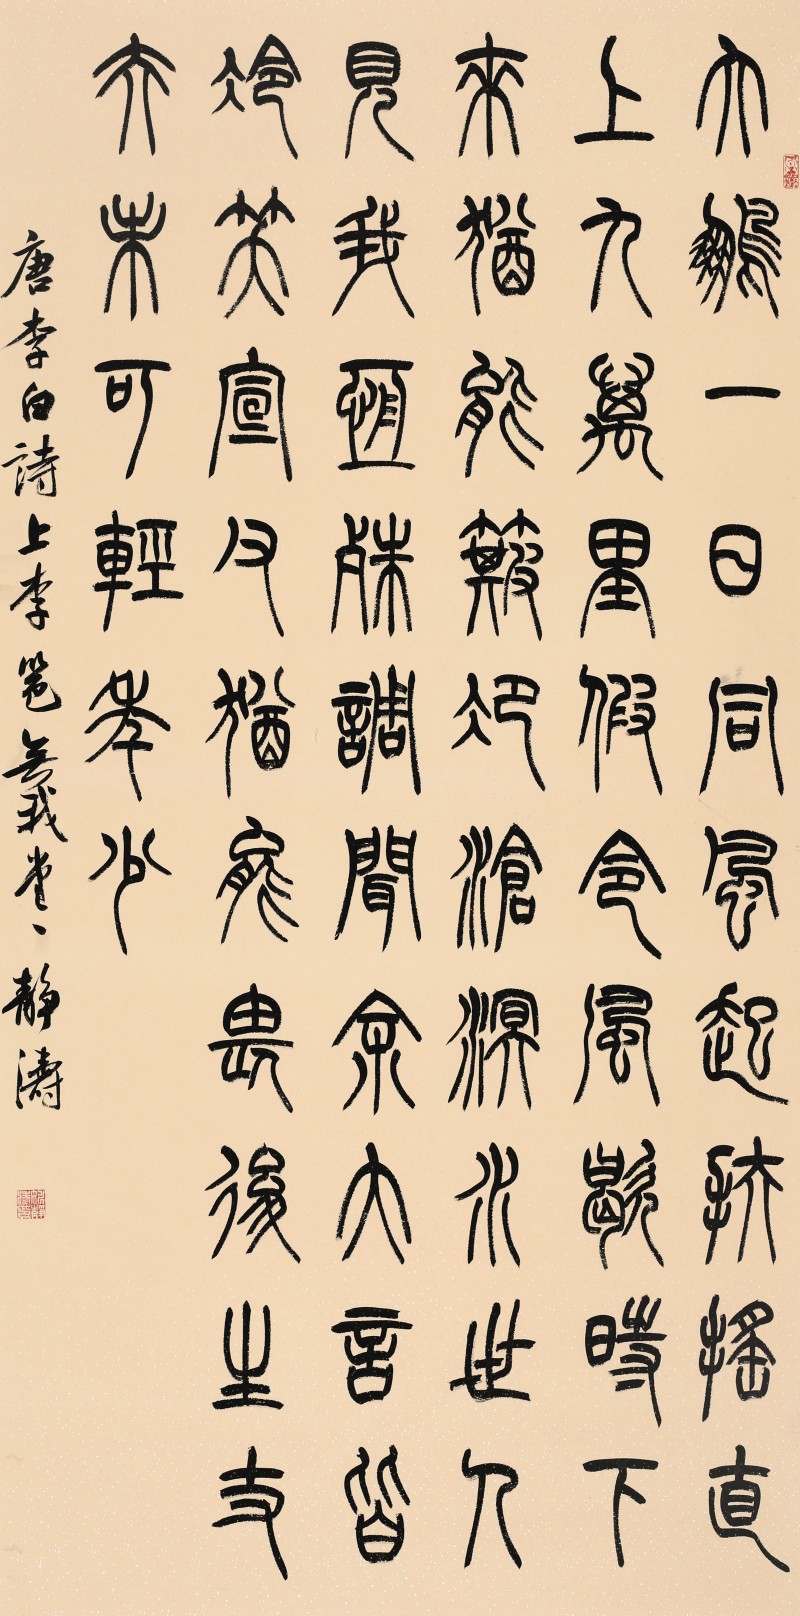 大鵬一日同風起扶搖直
上九萬里假令風歇時下
來猶能簸却滄溟水世人
見我恆殊調聞余大言皆
冷笑宣父猶能畏後生丈
夫未可輕年少
唐李白詩上李邕 堂 靜濤